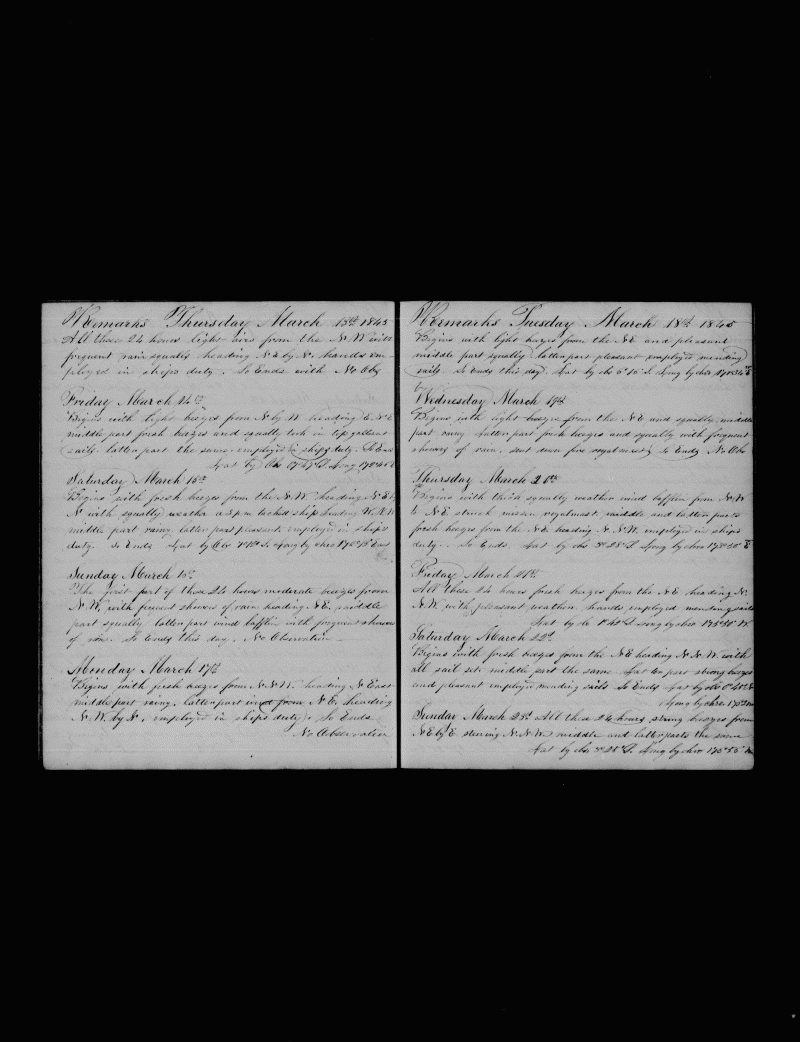 Remarks Thursday March 13th 1845
All these 24 hours light airs from the N.W. with
frequent rain squalls heading N.E by N. hands em-
ployed in ships duty. So Ends with No Obs
Friday March 14th
Begins with light breezes from N. by W. heading E.N.E
middle part fresh breezes and squally took in top gallant
sails. latter part the same. employed in ships duty. So Ends
Lat by Obs Long
Saturday March 15th
Begins with fresh breezes from the N.W. heading N.E by
N with squally weather at 3 p.m. tacked ship heading W.N.W
middle part rainy latter part pleasant. employed in ships
duty. So Ends Lat by Obs S. Long by chro East
Sunday March 16th
The first part of these 24 hours moderate breezes from
N.W. with frequent showers of rain heading N.E. middle
part squally. latter part wind bafflin with frequent showers
of rain. So Ends this day. No Observation
Monday March 17th
Begins with fresh breezes from N.N.W. heading N East
middle part rainy. latter part wind from N.E. heading
N.W. by N. employed in ships duty. So Ends
No Observation
Remarks Tuesday March 18th 1845
Begins with light breezes from the N.E and pleasant
middle part squally latter part pleasant employed mending
sails. So Ends this day. Lat by obs S. Long by chro
Wednesday March 19th
Begins with light breezes from the N.E and squally, middle
part rainy latter part fresh breezes and squally with frequent
showers of rain. sent down fore royalmast So Ends No Obs
Thursday March 20th
Begins with thick squally weather wind bafflin from N.W
to N.E struck mizen royalmast. middle and latter parts
fresh breezes from the N.E. heading N.N.W. employed in ships
duty. So Ends. Lat by obs 3°28 S. Long by chro E
Friday March 21st
All these 24 hours fresh breezes from the N.E. heading N.
N.W. with pleasant weather. hands employed mending sails
Lat by ob S Long by chro
Saturday March 22d
Begins with fresh breezes from the N.E heading N.N.W. with
all sail set. middle part the same. Lat er part strong breezes
and pleasant employed mending sails So Ends Lat by ob
Long by chro
Sunday March 23d All these 24 hours strong breezes from
N.E by E. steering N.N.W. middle and latter parts the same
Lat by obs Long by chro